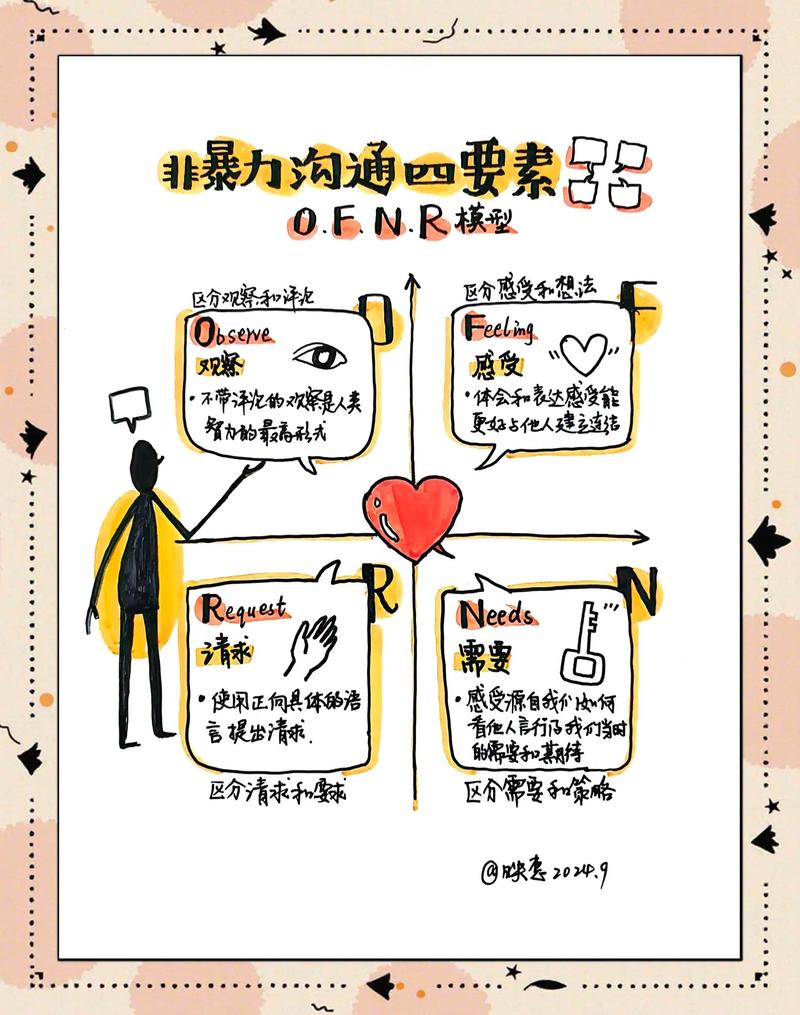 非暴力沟通四要素
O.F.N.R 模型
区分观察和评论
O
Observe
观察
• 不带评论的观察是人类
智力的最高形式
区分感受和想法
F
Feeling
感受
• 体会和表达感受能
更好与他人建立连结
R
Request
请求
• 使用正向具体的语
言提出请求.
区分请求和要求
N
Needs
需要
• 感受源自我们如何
看他人言行及我们当时
的需要和期待
区分需要和策略
@映惠 2024.9